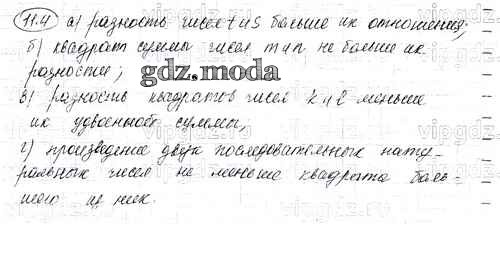 11.4 а) разность чисел t и s больше их отношения;
б) квадрат суммы чисел m и n не больше их
разности;
gdz.moda
в) разность квадратов чисел k и l меньше
их удвоенной суммы;
г) произведение двух последовательных нату-
ральных чисел не меньше квадрата боль-
шего из них.